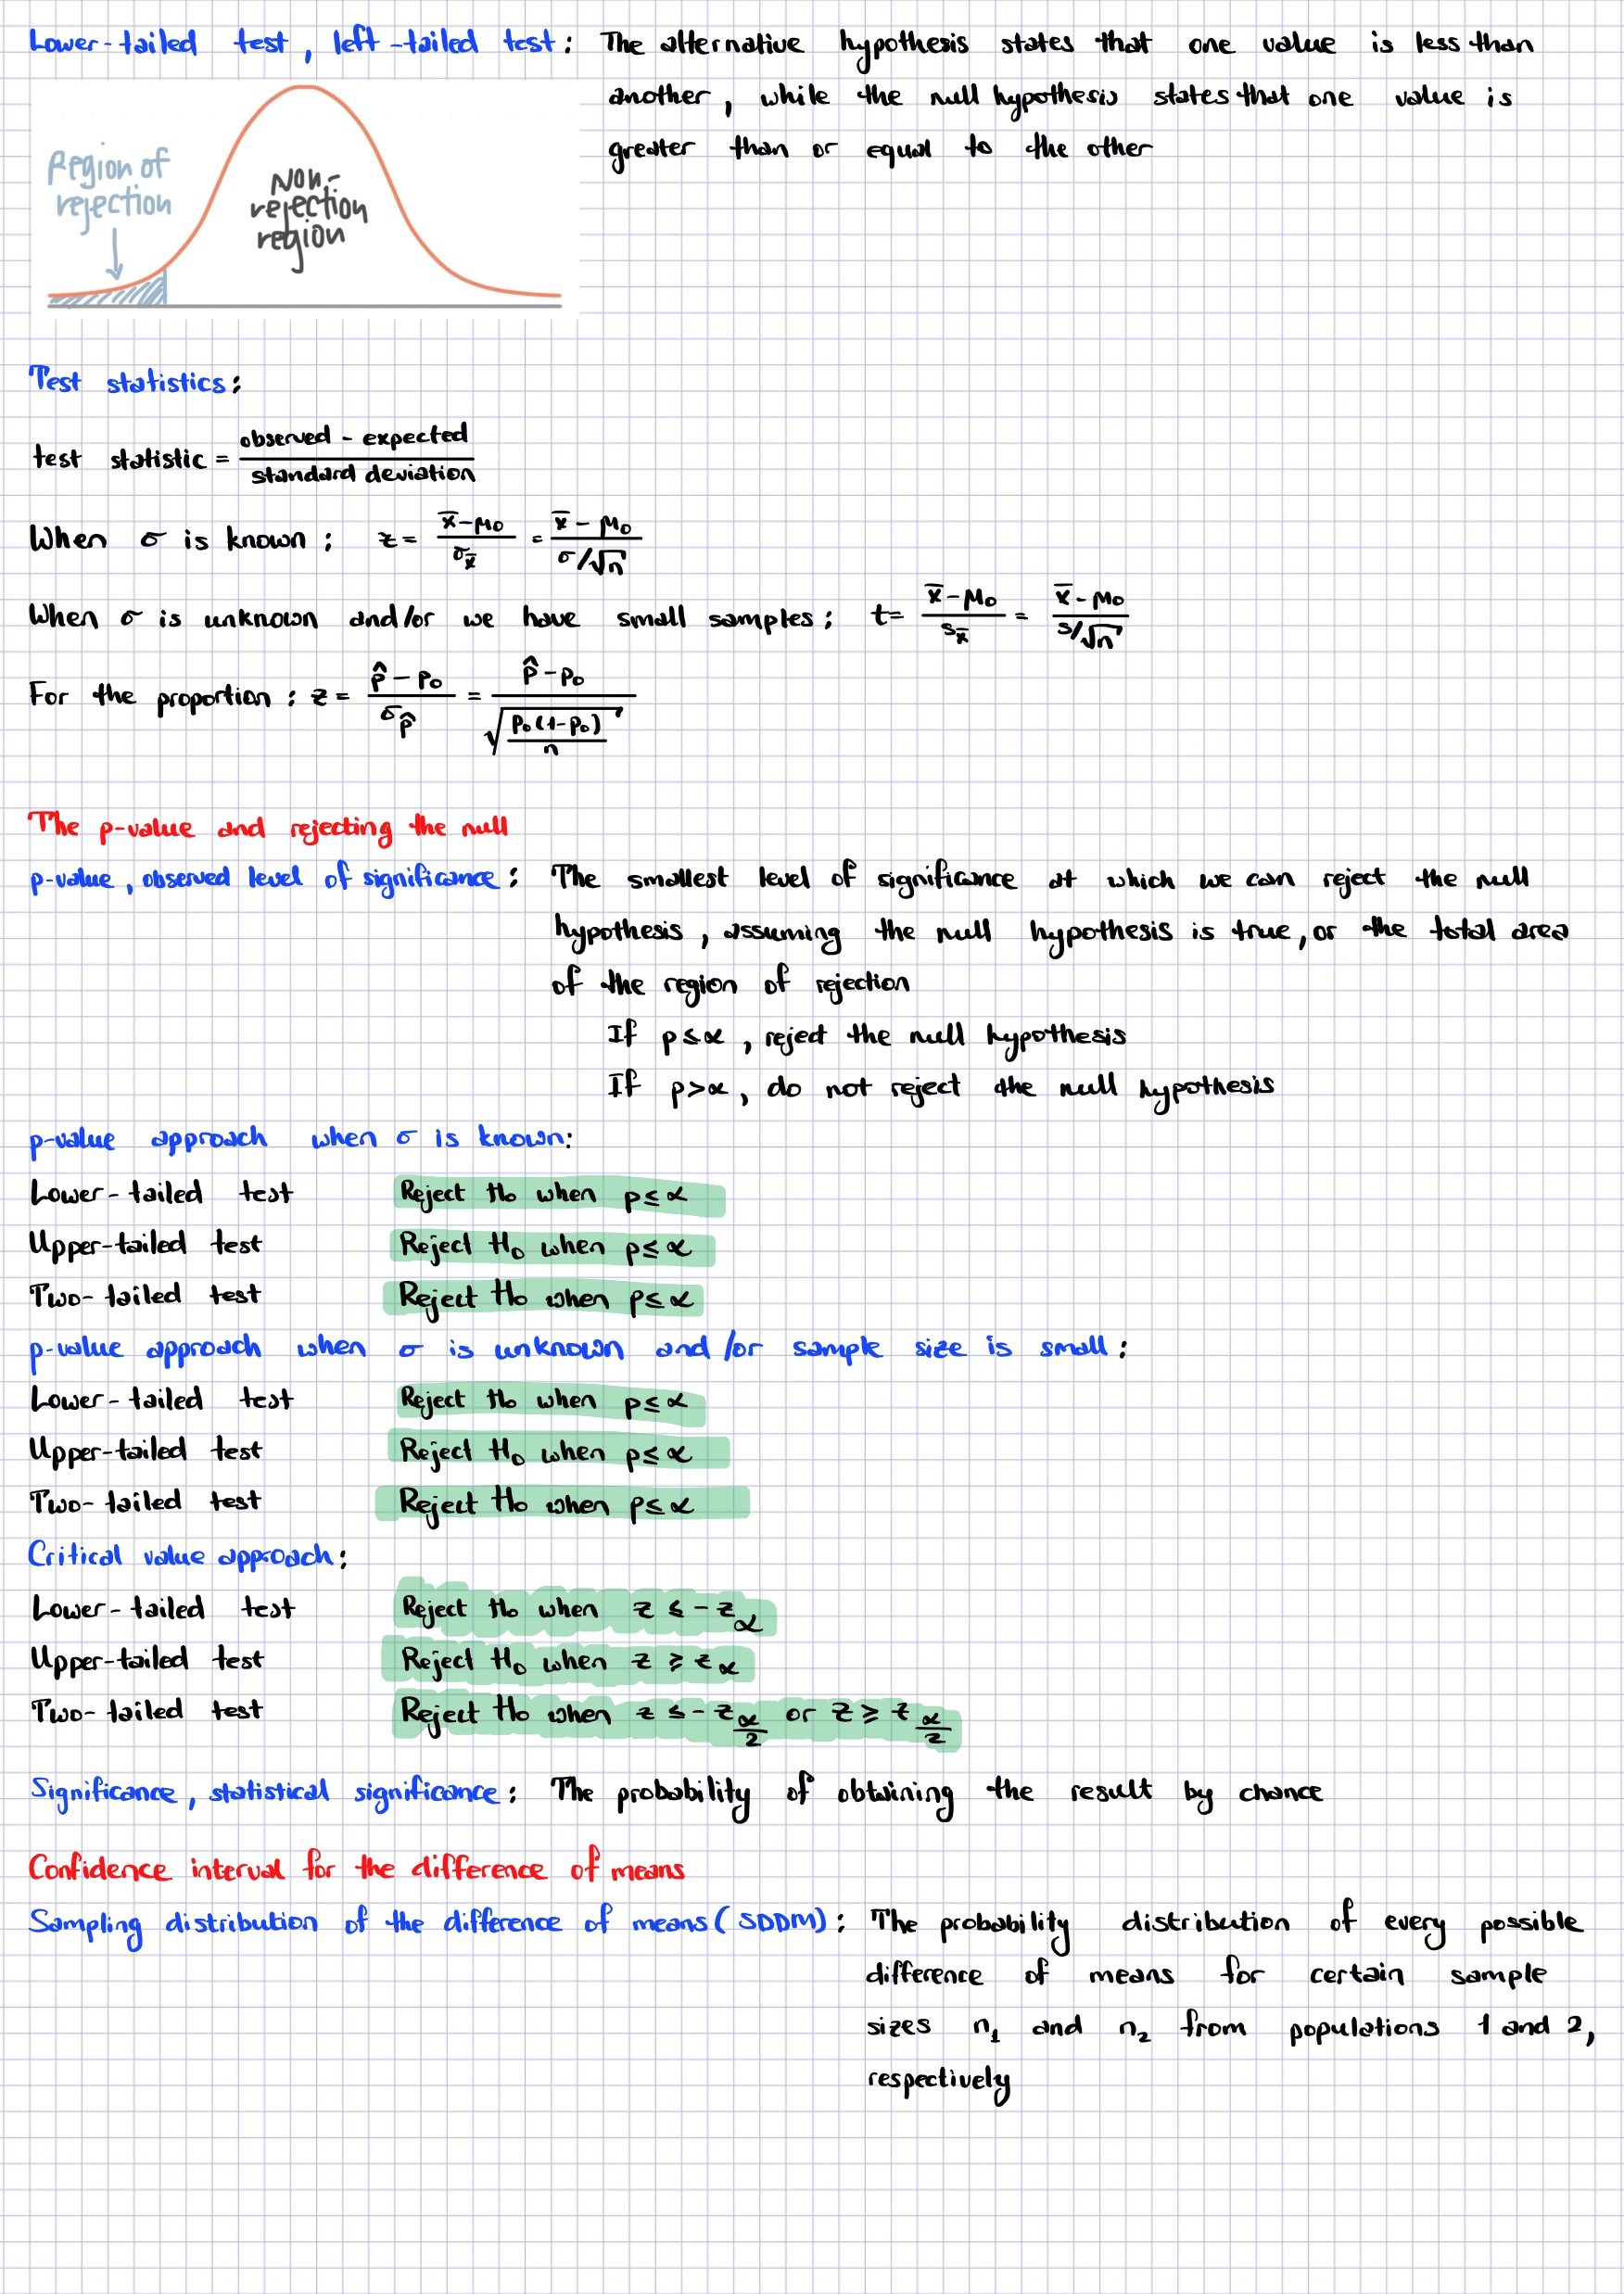 Lower-tailed test, left-tailed test: The alternative hypothesis states that one value is less than
another, while the null hypothesis states that one value is
greater than or equal to the other
Region of
rejection
Non-
rejection
region
Test statistics:
test statistic = observed - expected / standard deviation
When σ is known: z = (x̄ - μ₀)/σ_x̄ = (x̄ - μ₀)/(σ/√n)
When σ is unknown and/or we have small samples: t = (x̄ - μ₀)/s_x̄ = (x̄ - μ₀)/(s/√n)
For the proportion: z = (p̂ - p₀)/σ_p̂ = (p̂ - p₀)/√(p₀(1-p₀)/n)
The p-value and rejecting the null
p-value, observed level of significance: The smallest level of significance at which we can reject the null
hypothesis, assuming the null hypothesis is true, or the total area
of the region of rejection
If p ≤ α, reject the null hypothesis
If p > α, do not reject the null hypothesis
p-value approach when σ is known:
Lower-tailed test Reject H₀ when p ≤ α
Upper-tailed test Reject H₀ when p ≤ α
Two-tailed test Reject H₀ when p ≤ α
p-value approach when σ is unknown and/or sample size is small:
Lower-tailed test Reject H₀ when p ≤ α
Upper-tailed test Reject H₀ when p ≤ α
Two-tailed test Reject H₀ when p ≤ α
Critical value approach:
Lower-tailed test Reject H₀ when z ≤ -z_α
Upper-tailed test Reject H₀ when z ≥ z_α
Two-tailed test Reject H₀ when z ≤ -z_α/2 or z ≥ z_α/2
Significance, statistical significance: The probability of obtaining the result by chance
Confidence interval for the difference of means
Sampling distribution of the difference of means (SDDM): The probability distribution of every possible
difference of means for certain sample
sizes n₁ and n₂ from populations 1 and 2,
respectively